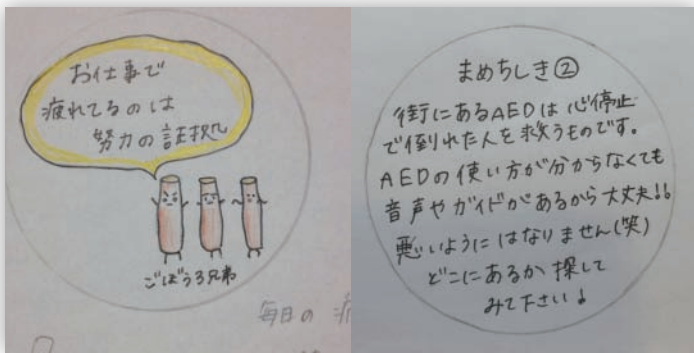 お仕事で
疲れてるのは
努力の証拠
ごぼう3兄弟
毎日の
まめちしき②
街にあるAEDは心停止
で倒れた人を救うものです。
AEDの使い方が分からなくても
音声やガイドがあるから大丈夫!!
悪いようにはなりません(笑)
どこにあるか探して
みて下さい♩